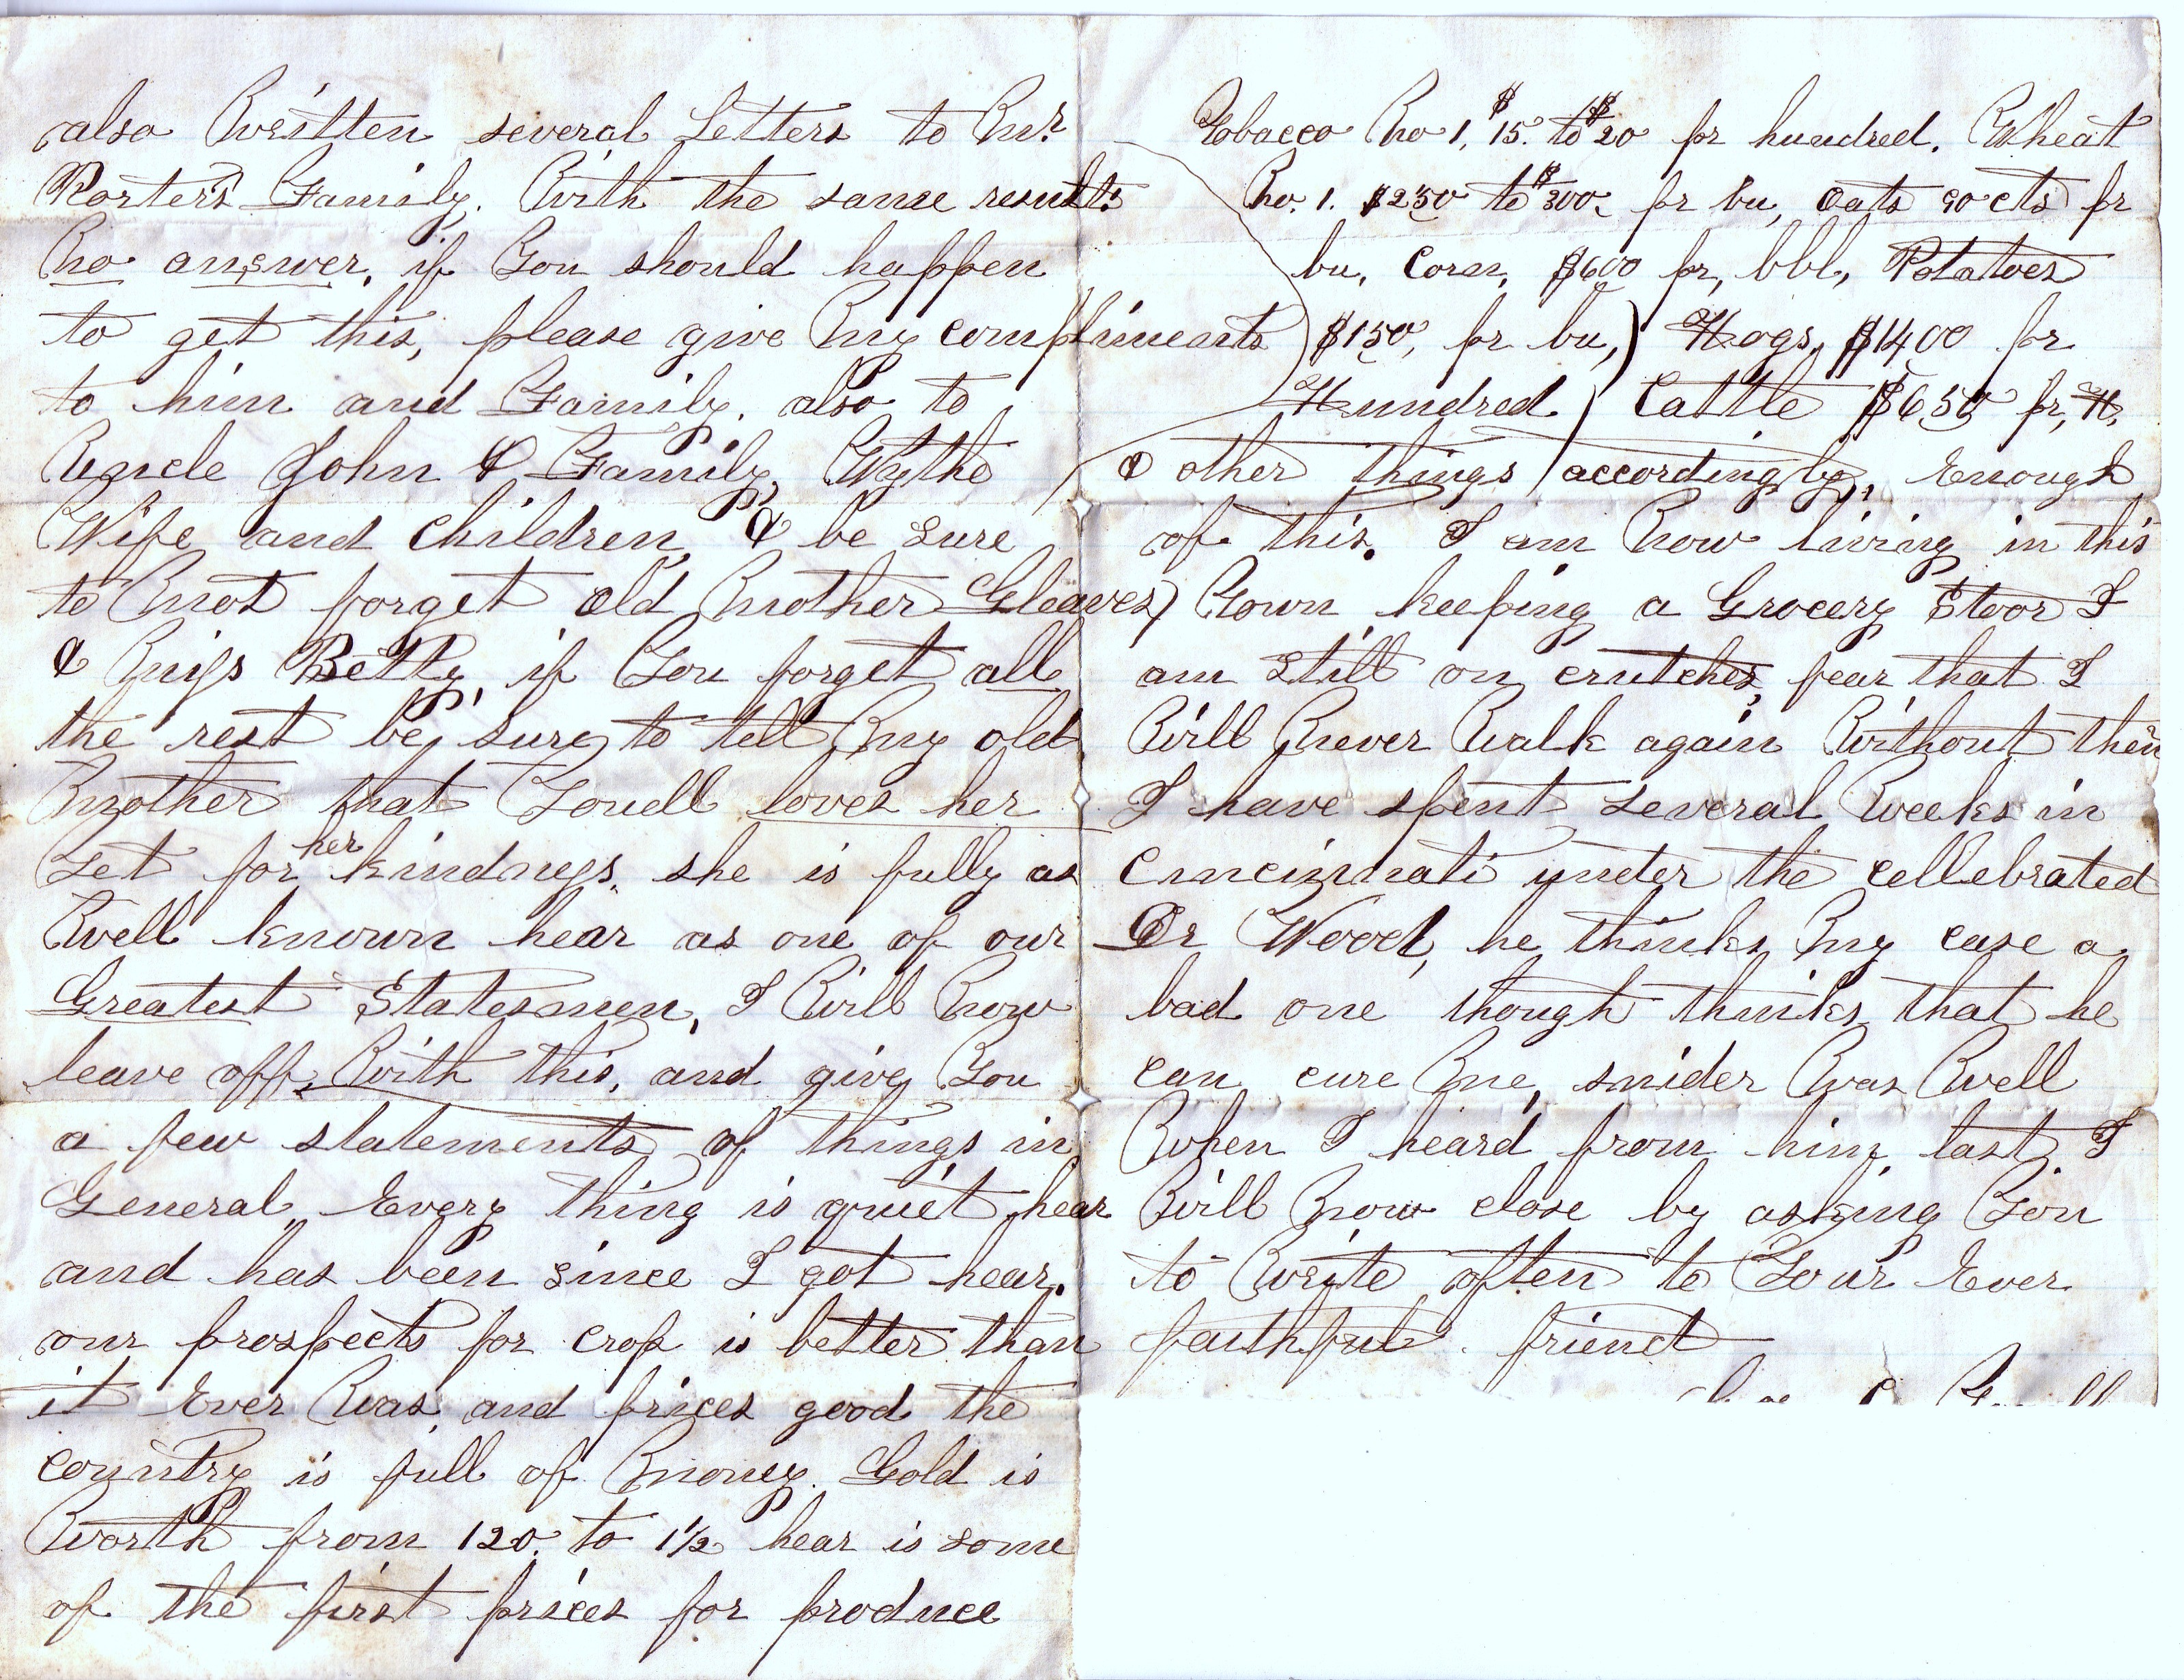 also Written several Letters to Mr.
Porter's Family. With the same result:
No answer, if You should happen
to get this, please give My compliments
to him and Family. also to
Uncle John & Family, Wythe
Wife and children, & be sure
to Not forget old Mother Gleaves)
& Miss Betty, if You forget all
the rest be sure to tell My old
Mother that Youell loves her
Yet for her kindness, she is fully as
Well known hear as one of our
Greatest Statesmen, I Will Now
leave off With this, and give You
a few statements of things in
General Every thing is quiet hear
and has been since I got hear.
our prospects for crop is better than
it Ever Was and prices good the
country is full of Money. Gold is
Worth from 120. to 1½ hear is some
of the first prices for produce
Tobacco No 1, $15. to $20 pr hundred. Wheat
No. 1. $250 to $300. pr bu, Oats 90 cts pr
bu, Corn, $600 pr, bbl, Potatoes
$150, pr bu,) Hogs, $1400 pr
Hundred) Cattle $650 pr, H,
& other things accordingly, Enough
of this. I am Now living in this
Town keeping a Grocery Stoor I
am Still on crutches, fear that I
Will Never Walk again Without them
I have spent several Weeks in
Cincinnati under the cellebrated
Dr Wood, he thinks My case a
bad one though thinks that he
can cure Me, snider Was Well
When I heard from him last. I
Will Now close by asking You
to Write often to Your Ever
faithful. friend